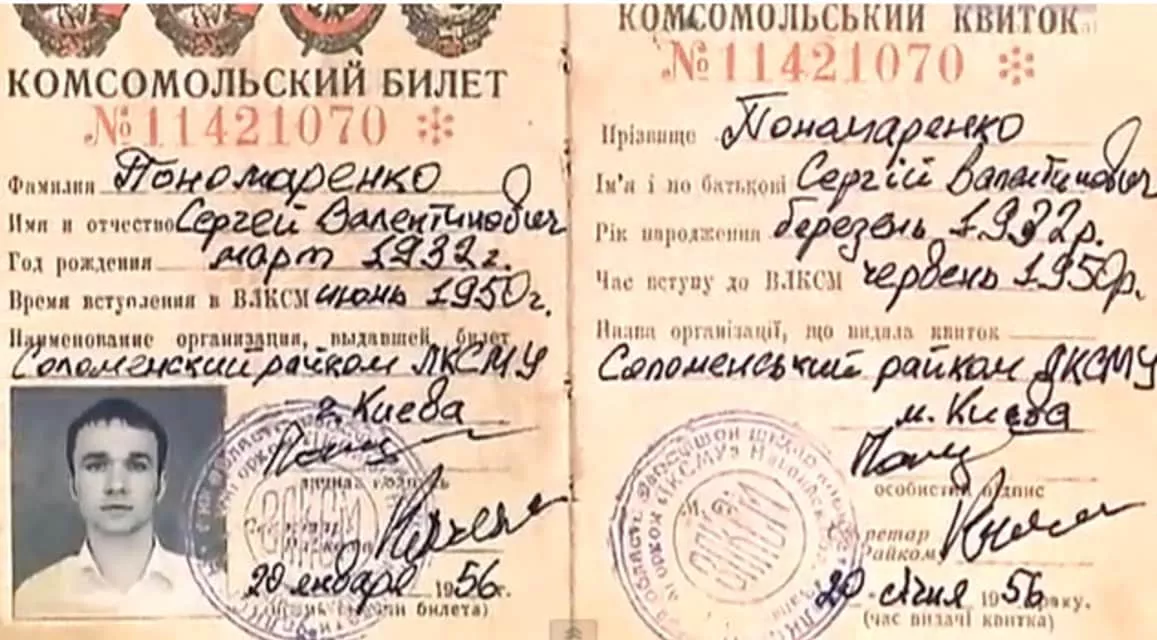 КОМСОМОЛЬСКИЙ БИЛЕТ
№ 11421070 *
Фамилия Пономаренко
Имя и отчество Сергей Валентинович
Год рождения март 1932 г.
Время вступления в ВЛКСМ июнь 1950 г.
Наименование организации, выдавшей билет
Соломенский райком ЛКСМУ
г. Киева
личная подпись
20 января 1956 г.
билета)
КОМСОМОЛЬСЬКИЙ КВИТОК
№ 11421070 *
Прізвище Пономаренко
Ім'я і по батькові Сергій Валентинович
Рік народження березень 1932 р.
Час вступу до ВЛКСМ червень 1950 р.
Назва організації, що видала квиток
Соломенський райком ЛКСМУ
м. Києва
особистий підпис
ретар
Райкому
20 січня 1956 року.
(час видачі квитка)
ВЛКСМ